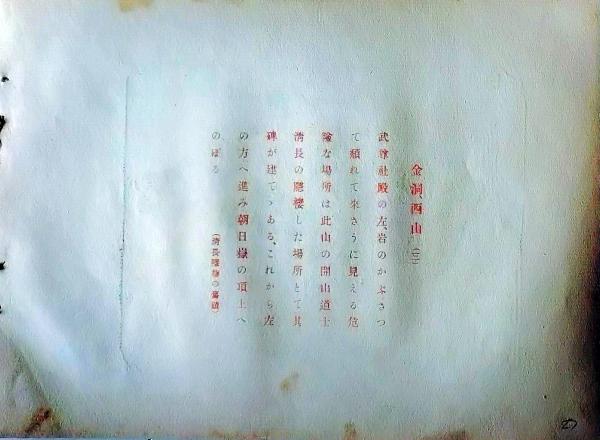 金洞、西山 (三)
武尊社殿の左、岩のかぶさつ
て頽れて来さうに見える危
險な場所は此山の開山道士
淸長の隱棲した場所とて其
碑が建てゝある、これから左
の方へ進み朝日嶽の項上へ
のぼる